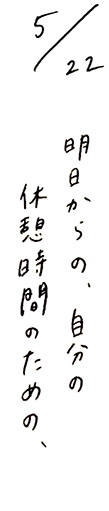 5/22
明日からの、自分の
休憩時間のための、